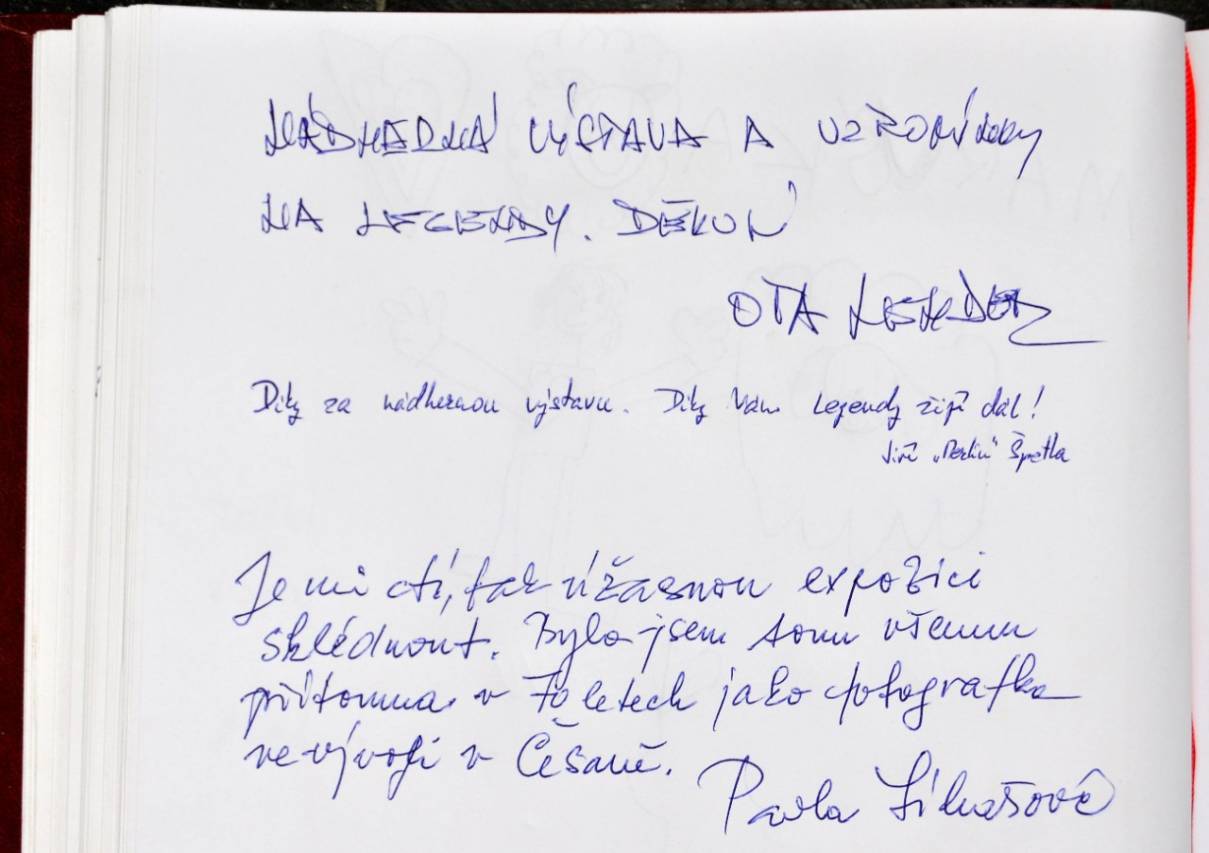 NÁDHERNÁ VÝSTAVA A VZPOMÍNKY
NA LEGENDY. DĚKUJI
OTA
Díky za nádhernou výstavu. Díky Vám Legendy žijí dál!
Jiří Špetla
Je mi ctí, tak úžasnou expozici
shlédnout. Byla jsem tomu všemu
přítomna v 70 letech jako fotografka
ve vývoji v
Pavla